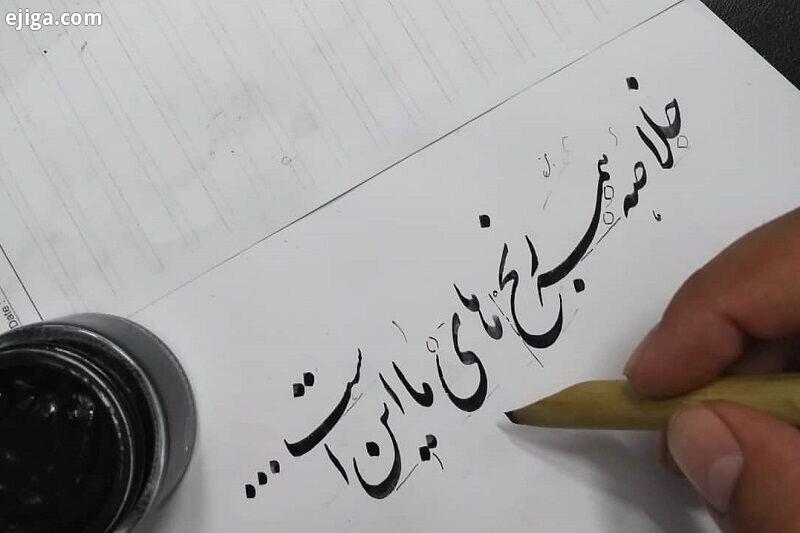 ejiga.com
خلاصه همه رنج های ما این است...
Date: